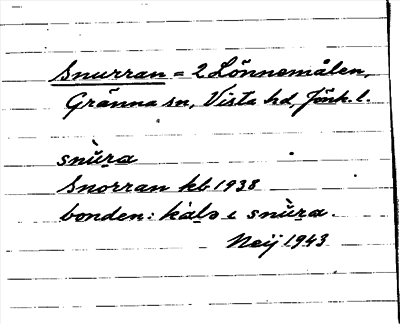 Snurran = 2 Lönnemålen,
Gränna sn, Vista hd, Jönk. l.
snùra
Snorran kb 1938
bonden: kals ɩ snùra.
Neij 1943